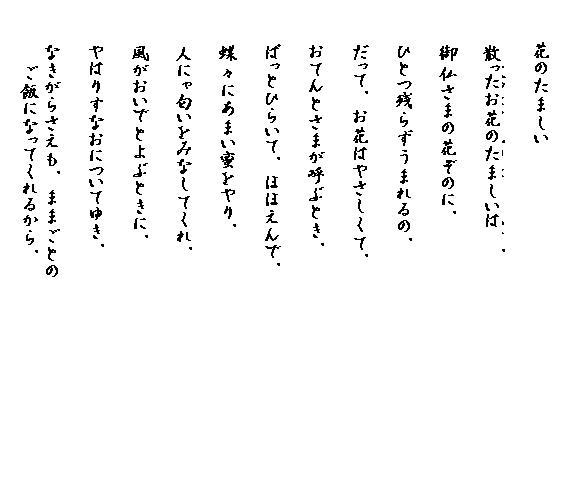 花のたましい
散ったお花のたましいは、
御仏さまの花ぞのに、
ひとつ残らずうまれるの。
だって、お花はやさしくて、
おてんとさまが呼ぶとき、
ぱっとひらいて、ほほえんで、
蝶々にあまい蜜をやり、
人にゃ匂いをみなしてくれ、
風がおいでとよぶときに、
やはりすなおについてゆき、
なきがらさえも、ままごとの
ご飯になってくれるから。